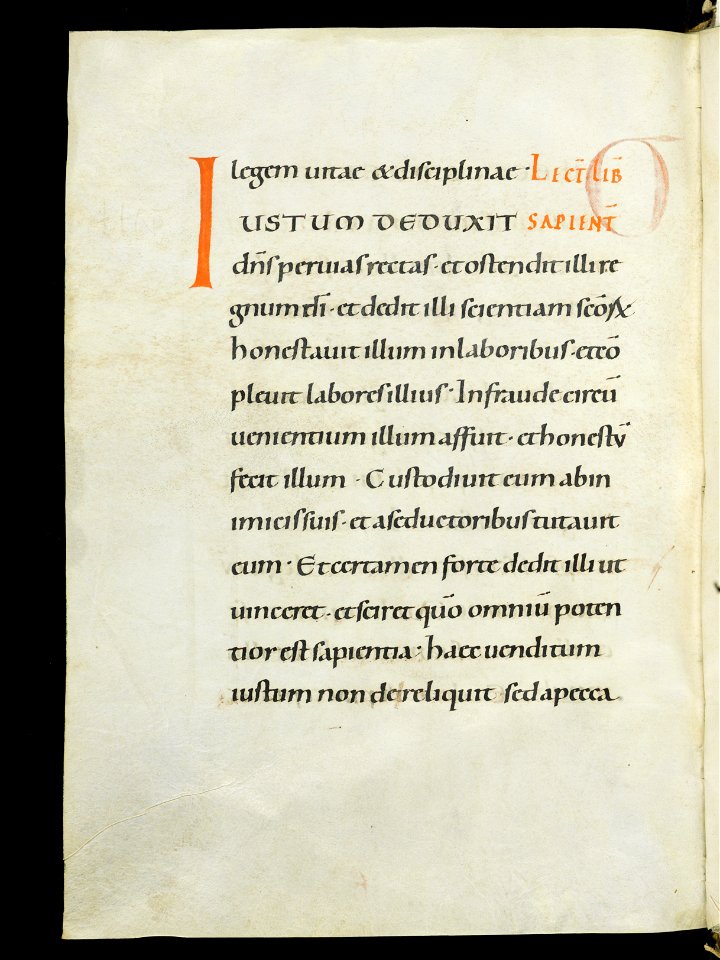 legem uitae & disciplinae · LECT̄ LIB̄
IUSTUM DEDUXIT SAPIENT̄
dn̄s per uias rectas · et ostendit illi re
gnum dī · et dedit illi scientiam sc̄oꝝ
honestauit illum in laboribus · et cō
pleuit labores illius · In fraude circū
uenientium illum affuit · et honestū
fecit illum · Custodiuit eum ab in
imicis suis · et a seductoribus tutauit
eum · Et certamen forte dedit illi ut
uinceret · et sciret quō omniū poten
tior est sapientia · haec uenditum
iustum non dereliquit · sed a pecca